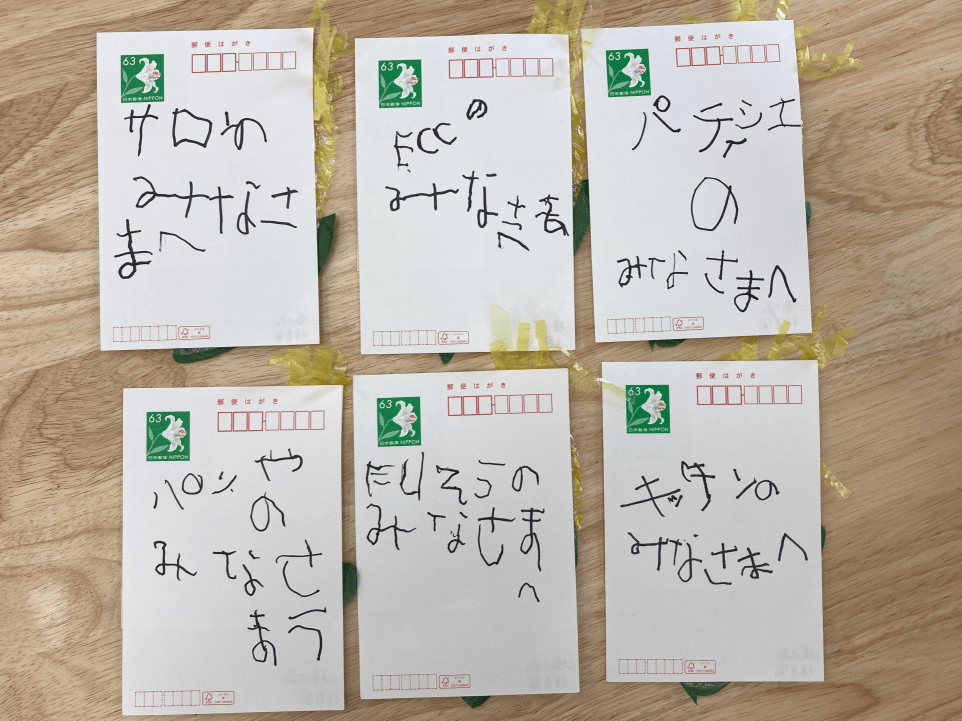 郵便はがき
63
日本郵便 NIPPON
サロンの
みなさ
まへ
郵便はがき
63
日本郵便 NIPPON
ECCの
みなさま
へ
郵便はがき
63
日本郵便 NIPPON
パティシエ
の
みなさまへ
郵便はがき
63
日本郵便 NIPPON
パンや
の
みなさ
まへ
郵便はがき
63
日本郵便 NIPPON
の
みなさま
へ
郵便はがき
63
日本郵便 NIPPON
キッチンの
みなさまへ